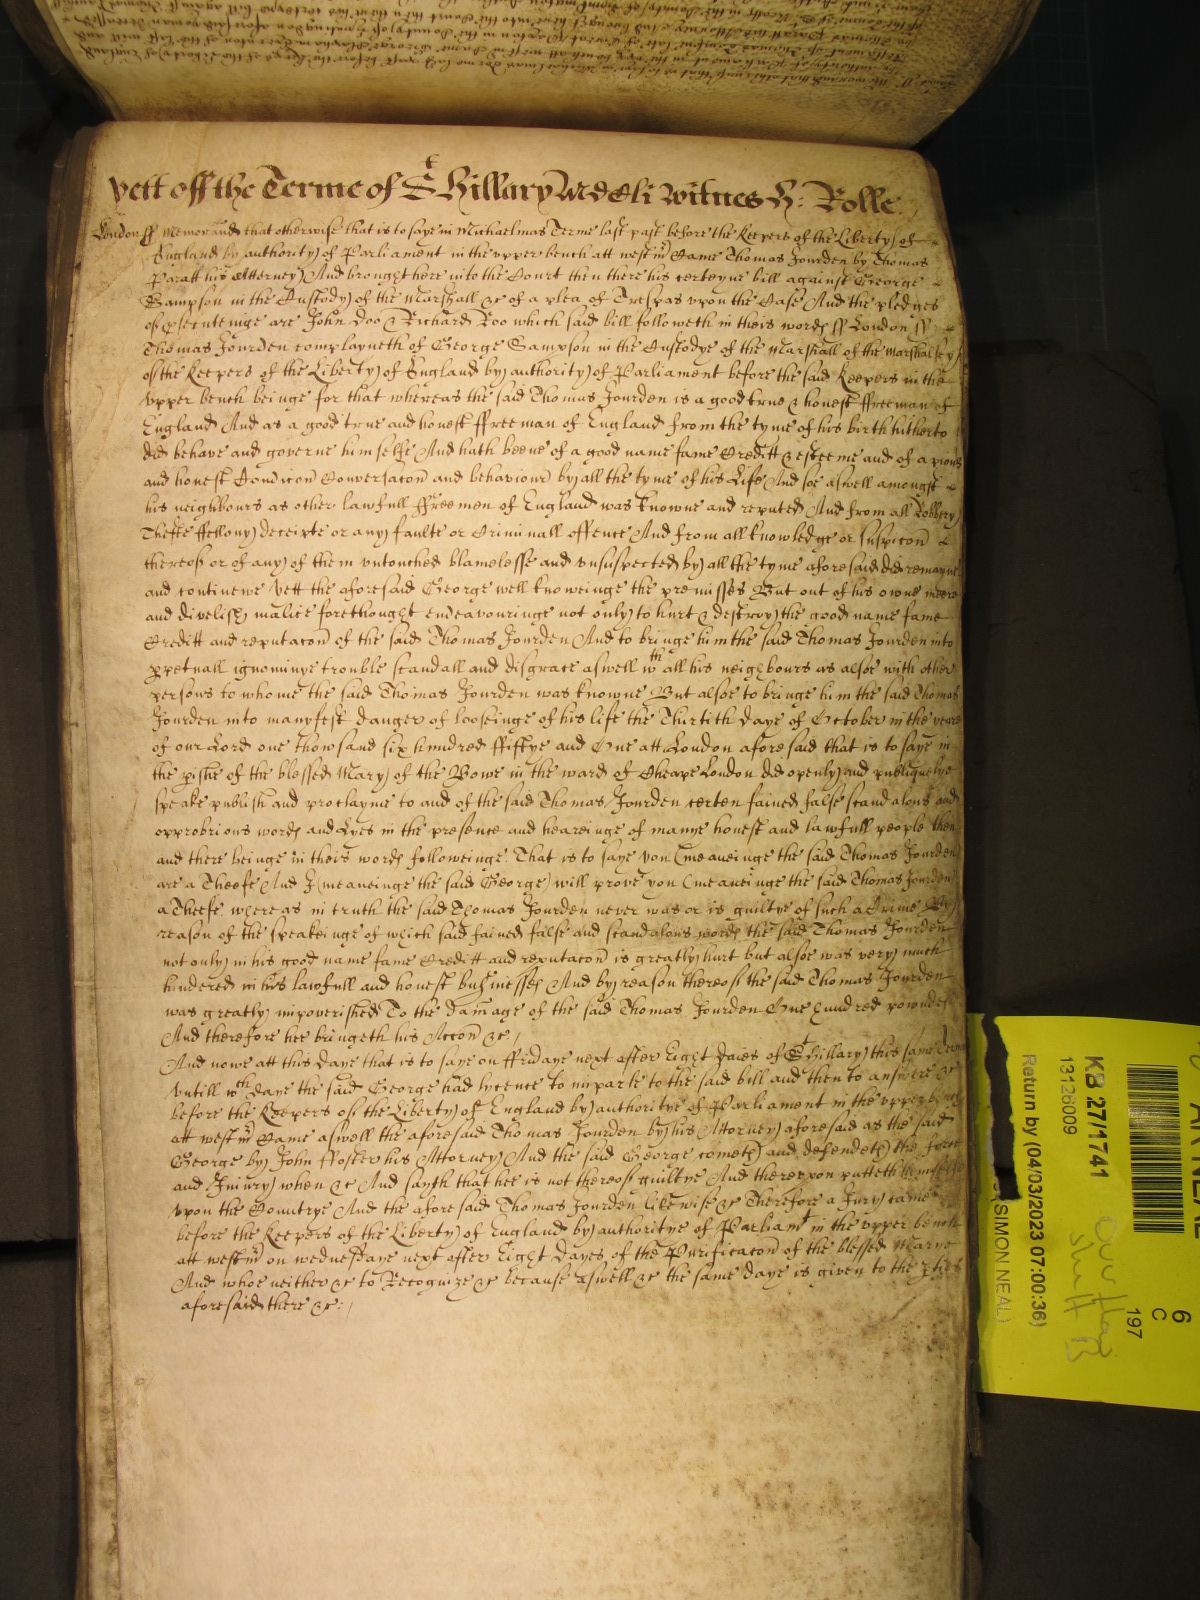 yett off the Terme of St Hillary MdcLi witnes H: Rolle
London ss Memorand that otherwise that is to saye in Michaelmas Terme last past before the Keepers of the Liberty of
England by authority of Parliament in the upper bench att westmr Came Thomas Jourden by Thomas
Paratt his Atterney And brought here into the Court then there his certeyne bill against George
Sampson in the Custody of the Marshall &c of a plea of Trespas upon the Case And the pledges
of psecuteinge are John Doo & Richard Roo which said bill followeth in theis words ss London ss
Thomas Jourden complayneth of George Sampson in the Custodye of the Marshall of the Marshalsey
of the Keepers of the Liberty of England by authority of Parliament before the said Keepers in the
upper bench beinge for that whereas the said Thomas Jourden is a good true & honest ffreeman of
England And as a good true and honest ffreeman of England from the tyme of his birth hitherto
did behave and governe himselfe And hath beene of a good name fame Creditt & esteeme and of a pious
and honest Condicon Conversacon and behaviour by all the tyme of his Life And soe aswell amongst
his neighbours as other lawfull ffreemen of England was knowne and reputed And from all Robbery
Thefte ffellony deceipte or any faulte or Criminall offence And from all knowledge or suspicon
thereof or of any of them untouched blamelesse and unsuspected by all the tyme aforesaid did remayne
and continewe yett the aforesaid George well knoweinge the premisses But out of his owne meere
and divelish malice forethought endeavouringe not only to hurt & destroy the good name fame
Creditt and reputacon of the said Thomas Jourden And to bringe him the said Thomas Jourden into
ppetuall ignominye trouble scandall and disgrace aswell wth all his neighbours as alsoe with other
persons to whome the said Thomas Jourden was knowne But alsoe to bringe him the said Thomas
Jourden into manyfest danger of looseinge of his life the Thirtith daye of October in the yeare
of our Lord one thowsand six hundred ffiftye and One att London aforesaid that is to saye in
the pishe of the blessed Mary of the Bowe in the ward of Cheape London did openly and publiquelye
speake publish and proclayme to and of the said Thomas Jourden certen fained false scandalous and
opprobrious words and Lyes in the presence and heareinge of manye honest and lawfull people then
and there beinge in theis words followeinge That is to saye you (meaneinge the said Thomas Jourden)
are a Theefe And I (meaneinge the said George) will prove you (meaneinge the said Thomas Jourden)
a Theefe whereas in truth the said Thomas Jourden never was or is guiltye of such a Crime By
reason of the speakeinge of which said fained false and scandalous words the said Thomas Jourden
not only in his good name fame Creditt and reputacon is greatly hurt but alsoe was very much
hindered in his lawfull and honest businesses And by reason thereof the said Thomas Jourden
was greatly impoverished To the damage of the said Thomas Jourden One hundred pownds
And therefore hee bringeth his Accon &c
And nowe att this daye that is to saye on ffridaye next after Eight daies of St Hillary this same Terme
untill wth daye the said George had lycence to imparle to the said bill and then to answere &c
before the Keepers of the Liberty of England by authoritye of Parliament in the upper bench
att westmr Came aswell the aforesaid Thomas Jourden by his Attorney aforesaid as the said
George by John ffoster his Attorney And the said George cometh and defendeth the force
and Injury when &c And sayth that hee is not thereof guiltye And thereupon putteth himselfe
upon the Countrye And the aforesaid Thomas Jourden likewise &c Therefore a Jury came
before the Keepers of the Liberty of England by authoritye of Parliamt in the upper bench
att westmr on wednesdaye next after Eight dayes of the Purificacon of the blessed Marye
And whoe neither &c to Recognize &c because aswell &c the same daye is given to the pties
aforesaid there &c
KB 27/1741
13126009
Return by (04/03/2023 07:00:36)
(SIMON NEAL)
6
C
197